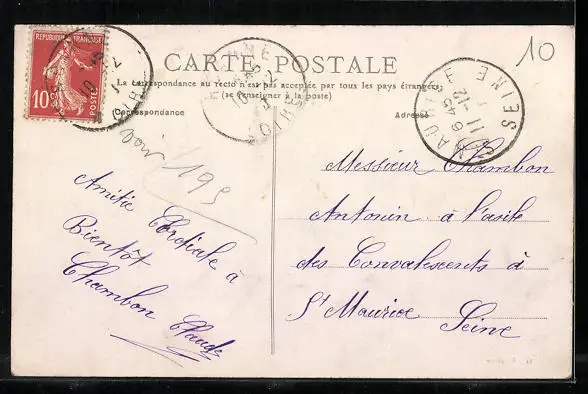 REPUBLIQUE FRANÇAISE
10
POSTES
CARTE POSTALE
10
La correspondance au recto n'est pas acceptée par tous les pays étrangers
(se renseigner à la poste)
Correspondance
Adresse
LOIRE
ST MAURICE
6 45
11 -12
SEINE
Amitié Cordiale à
Bientôt
Chambon Claude
Messieur Chambon
Antonin à l'asile
des Convalescents à
St Maurice
Seine